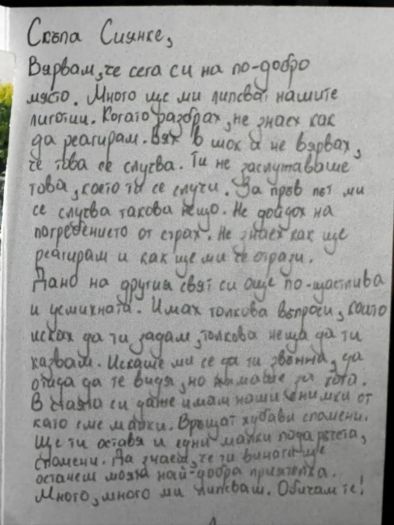 Скъпа Сиянке,
Вярвам, че сега си на по-добро
място. Много ще ми липсват нашите
лиготии. Когато разбрах, не знаех как
да реагирам. Бях в шок и не вярвах,
че това се случва. Ти не заслужаваше
това, което ти се случи. За пръв път ми
се случва такова нещо. Не дойдох на
погребението от страх. Не знаех как ще
реагирам и как ще ми се отрази.
Дано на другия свят си още по-щастлива
и усмихната. Имах толкова въпроси, които
исках да ти задам, толкова неща да ти
казвам. Искаше ми се да ти звънна, да
дойда да те видя, но нямаше за кога.
В стаята си даже имам наши снимки от
като сме малки. Връщат хубави спомени.
Ще ти оставя и едни малки подаръчета,
спомени. Да знаеш, че ти винаги ще
останеш моята най-добра приятелка.
Много, много ми липсваш. Обичам те!